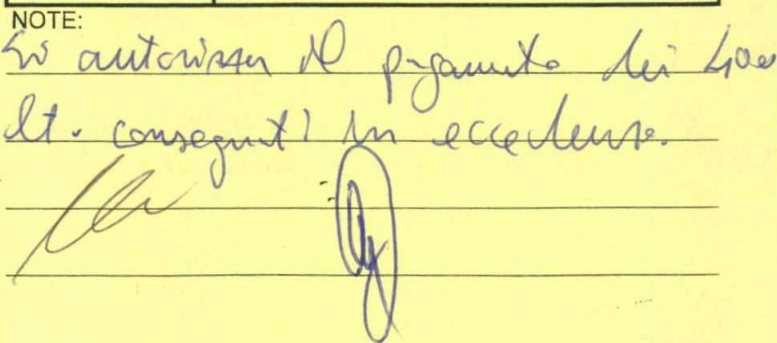 NOTE:
Si autorizza il pagamento dei 400
lt. consegnati in eccedenza.